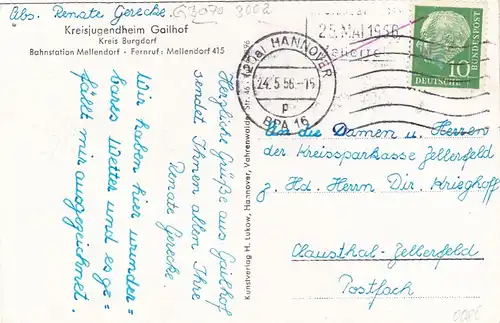 Abs. Renate Gerecke.
Kreisjugendheim Gailhof
Kreis Burgdorf
Bahnstation Mellendorf - Fernruf: Mellendorf 415
Wir haben hier wunder-
bares Wetter und es ge-
fällt mir ausgezeichnet.
Herzliche Grüße aus Gailhof
sendet Ihnen allen Ihre
Renate Gerecke.
Kunstverlag H. Lukow, Hannover, Vahrenwalder Str. 46
HANNOVER
24.5.56.-15
p
BPA 16
25. MAI 1956
DEUTSCHE BUNDESPOST
10
An die Damen u. Herren
der Kreissparkasse Zellerfeld
z. Hd. Herrn Dir. Krieghoff
Clausthal-Zellerfeld
Postfach